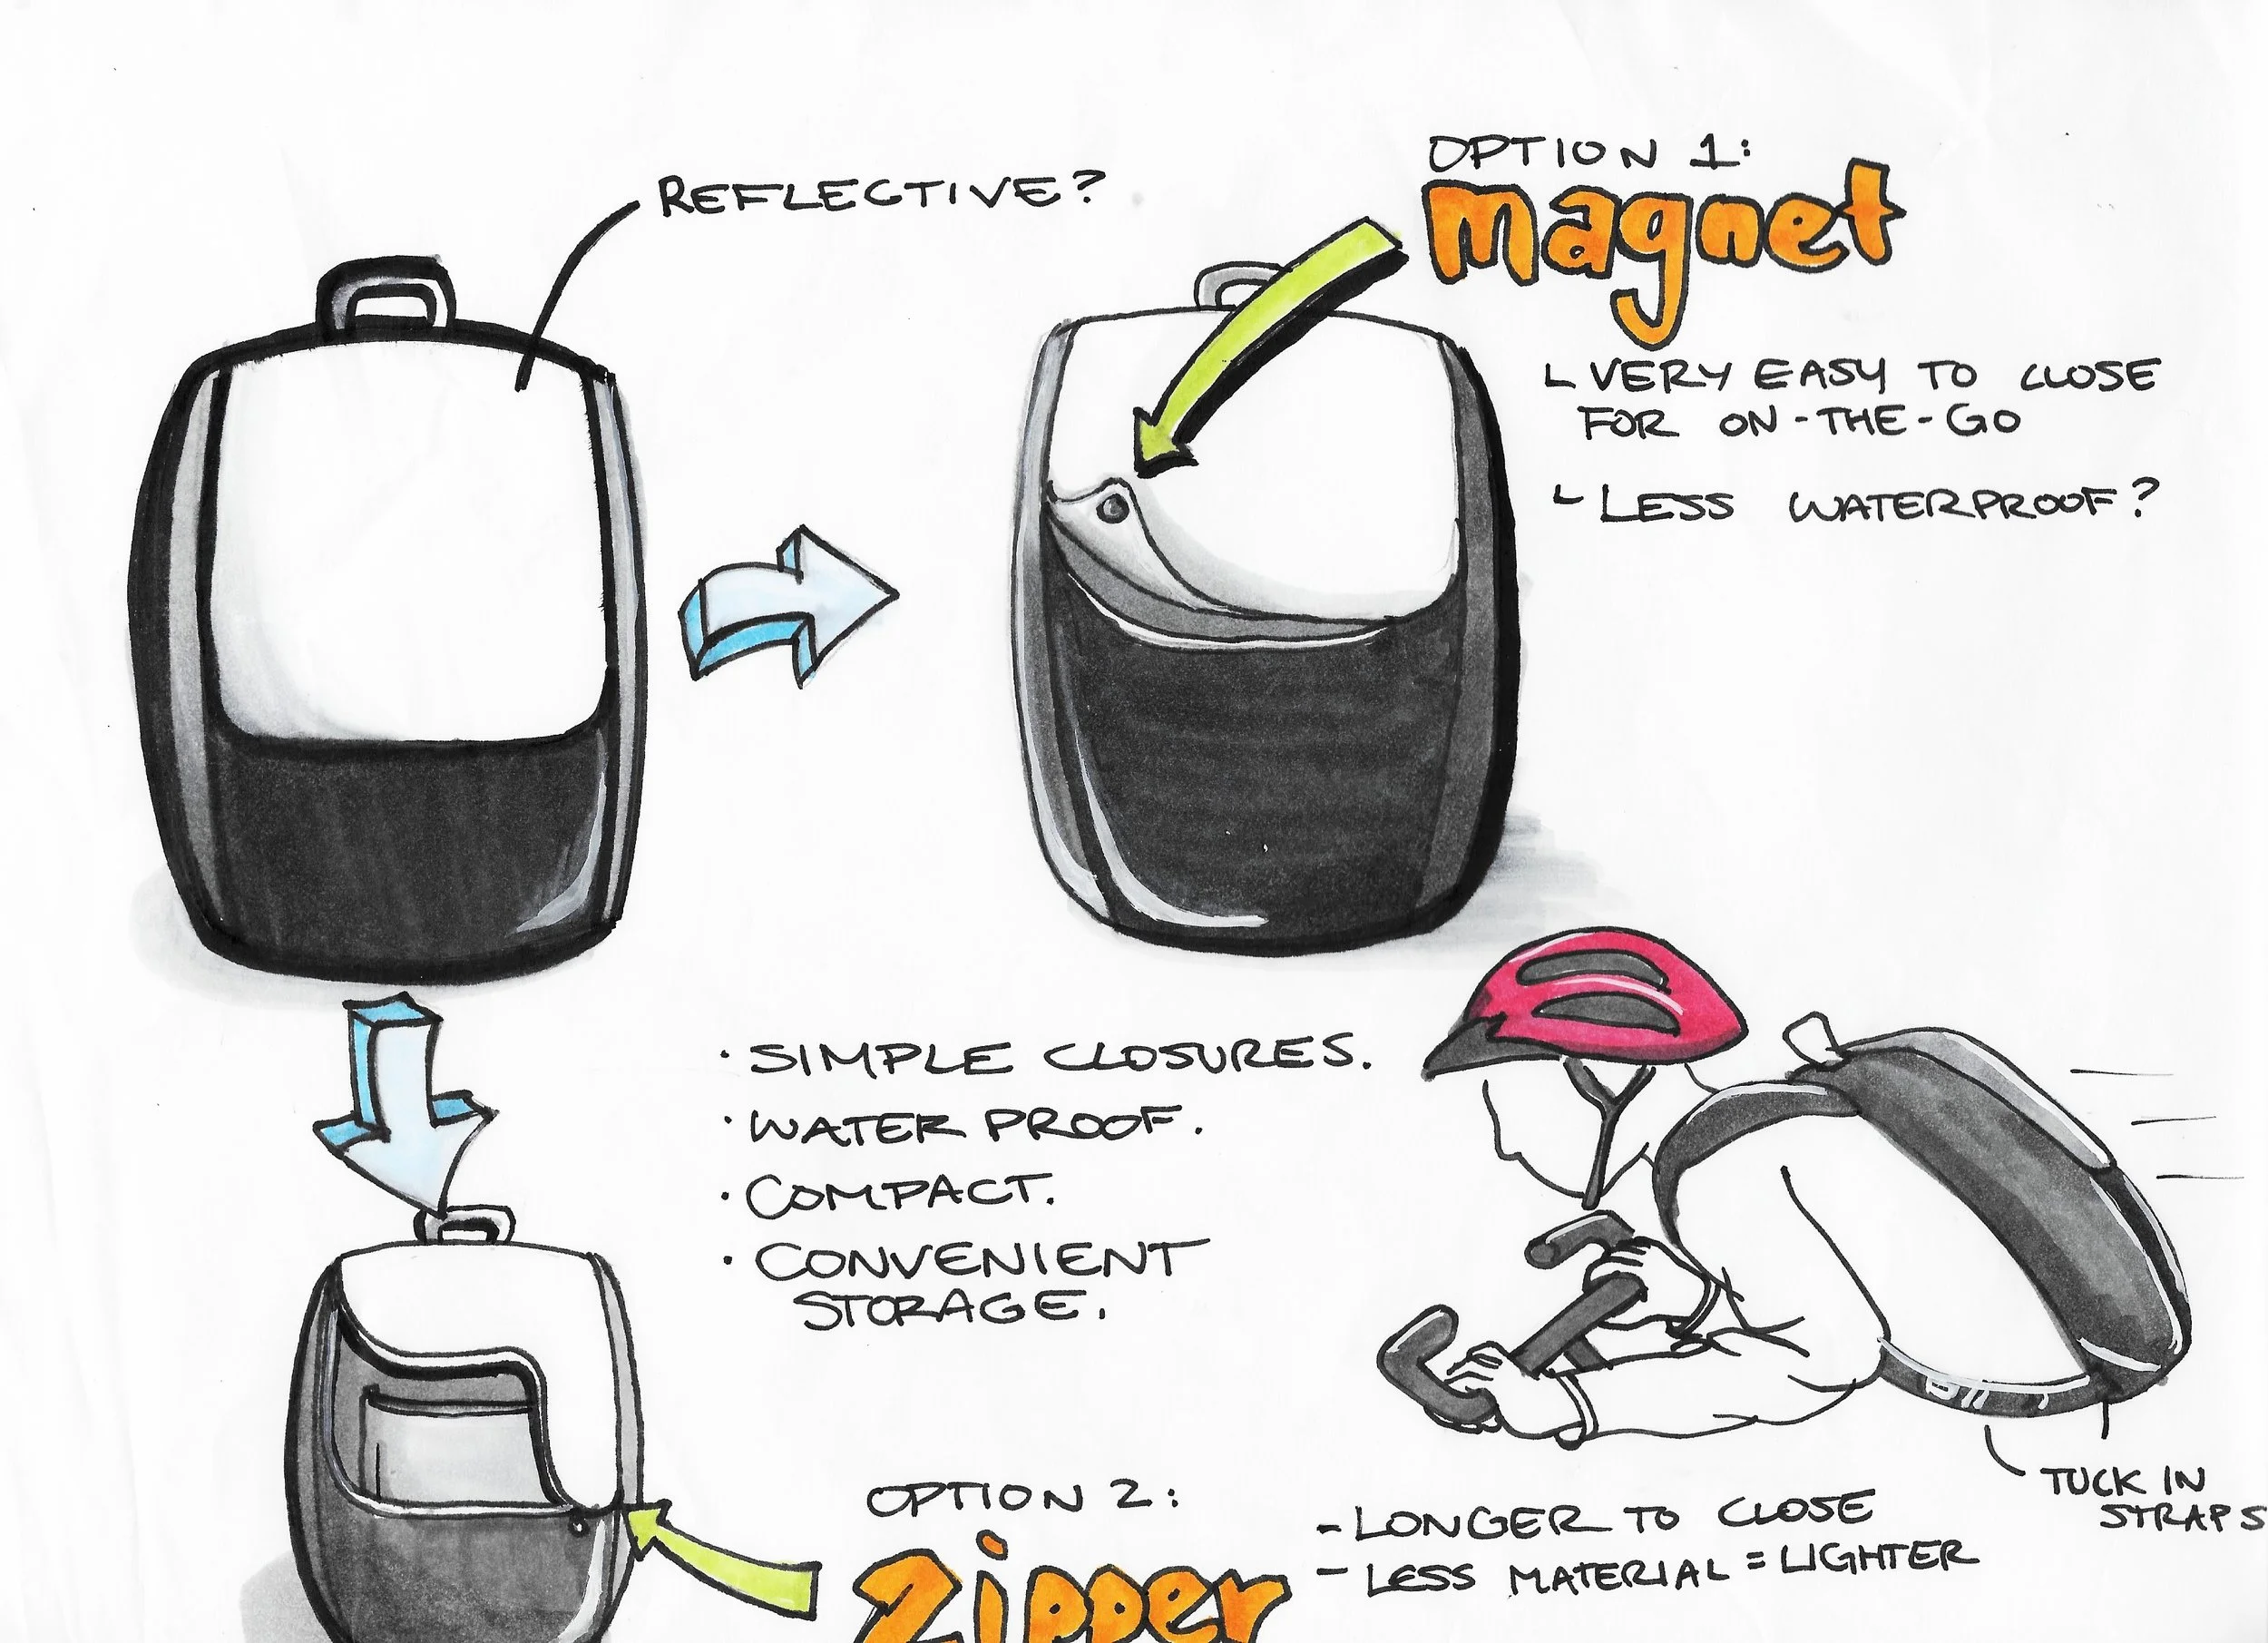 REFLECTIVE?
OPTION 1:
magnet
VERY EASY TO CLOSE
FOR ON-THE-GO
LESS WATERPROOF?
· SIMPLE CLOSURES.
· WATER PROOF.
· COMPACT.
· CONVENIENT
STORAGE.
TUCK IN
STRAPS
OPTION 2:
Zipper
- LONGER TO CLOSE
- LESS MATERIAL = LIGHTER